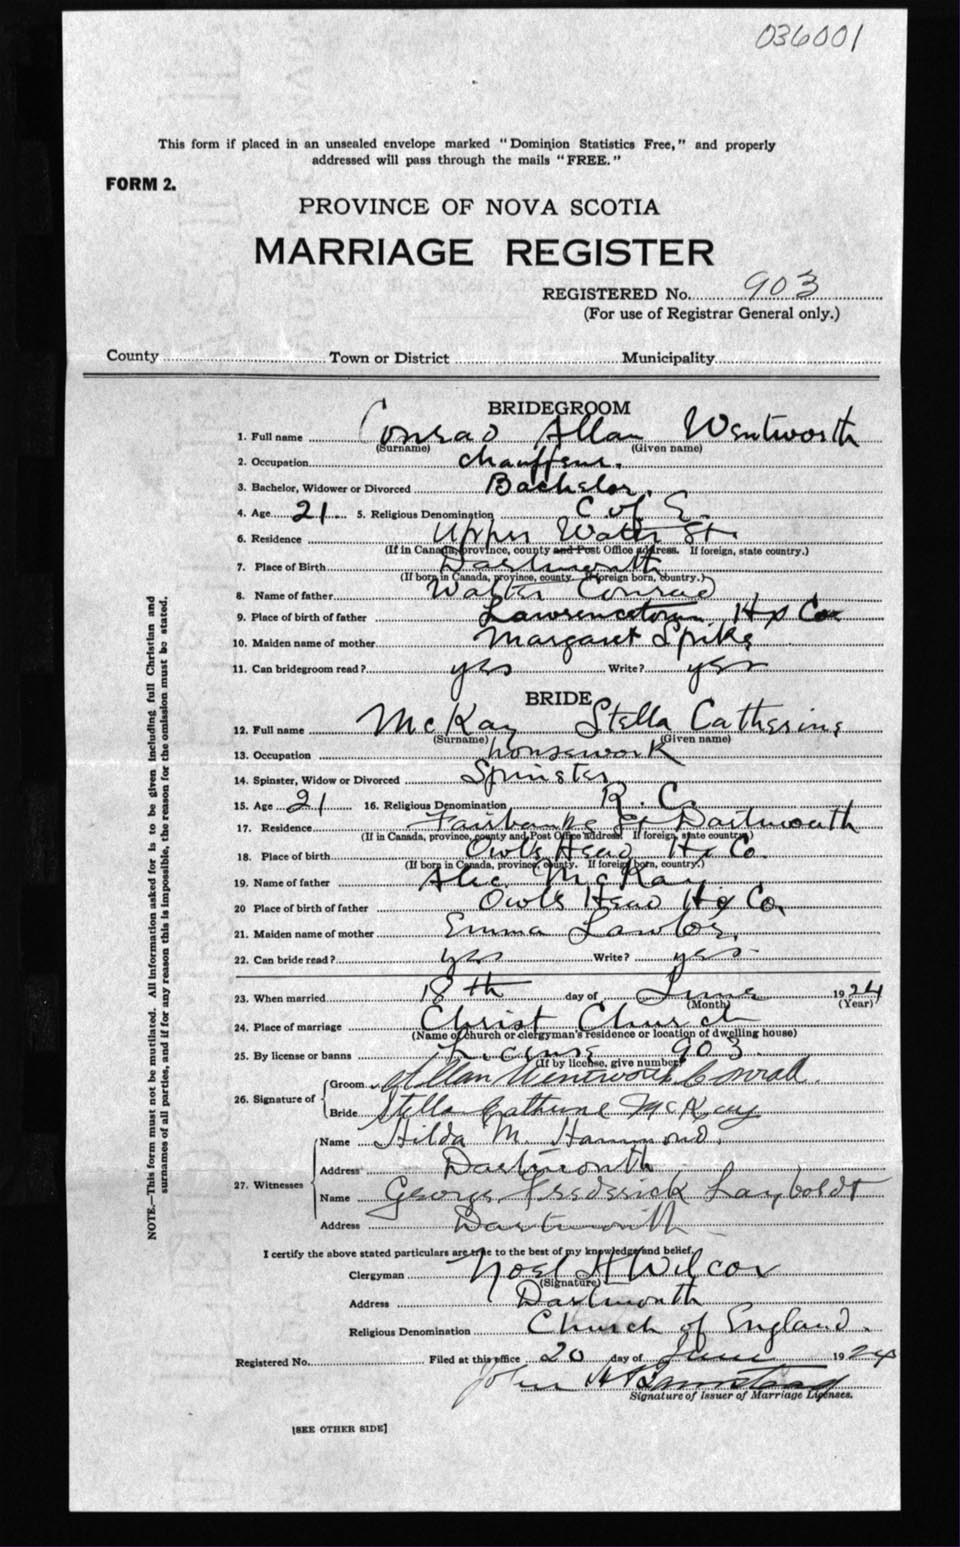 036001
This form if placed in an unsealed envelope marked "Dominion Statistics Free," and properly
addressed will pass through the mails "FREE."
FORM 2.
PROVINCE OF NOVA SCOTIA
MARRIAGE REGISTER
REGISTERED No. 903
(For use of Registrar General only.)
County Town or District Municipality
BRIDEGROOM
1. Full name Conrad Allan Wentworth
(Surname) (Given name)
2. Occupation chauffeur.
3. Bachelor, Widower or Divorced Bachelor.
4. Age 21 5. Religious Denomination C of E.
6. Residence Upper Water St.
(If in Canada, province, county and Post Office address. If foreign, state country.)
7. Place of Birth Dartmouth
(If born in Canada, province, county. If foreign born, country.)
8. Name of father Walter Conrad
9. Place of birth of father Lawrencetown Hx Co
10. Maiden name of mother Margaret Spike
11. Can bridegroom read? yes Write? yes
BRIDE
12. Full name McKay Stella Catherine
(Surname) (Given name)
13. Occupation housework
14. Spinster, Widow or Divorced Spinster
15. Age 21 16. Religious Denomination R. C.
17. Residence Fairbanks St Dartmouth
(If in Canada, province, county and Post Office address. If foreign, state country.)
18. Place of birth Owls Head Hx Co.
(If born in Canada, province, county. If foreign born, country.)
19. Name of father Alec McKay
20 Place of birth of father Owls Head Hx Co.
21. Maiden name of mother Emma Lawlor.
22. Can bride read? yes Write? yes
23. When married 18th day of June 1924
(Month) (Year)
24. Place of marriage Christ Church
(Name of church or clergyman's residence or location of dwelling house)
25. By license or banns License 903
(If by license, give number)
26. Signature of
Groom Allan Wentworth Conrad.
Bride Stella Catherine McKay
27. Witnesses
Name Hilda M. Hammond.
Address Dartmouth
Name George Frederick Layboldt
Address Dartmouth
I certify the above stated particulars are true to the best of my knowledge and belief.
Clergyman Noel H Wilcox
(Signature)
Address Dartmouth
Religious Denomination Church of England.
Registered No. Filed at this office 20 day of June 1924
John H
Signature of Issuer of Marriage Licenses.
[SEE OTHER SIDE]
NOTE.—This form must not be mutilated. All information asked for is to be given including full Christian and
surnames of all parties, and if for any reason this is impossible, the reason for the omission must be stated.